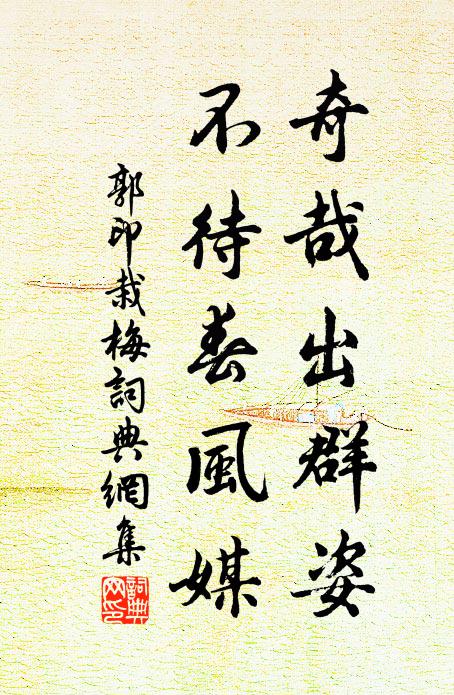 奇哉出群姿
不待春風媒
郭印栽梅詞典網集